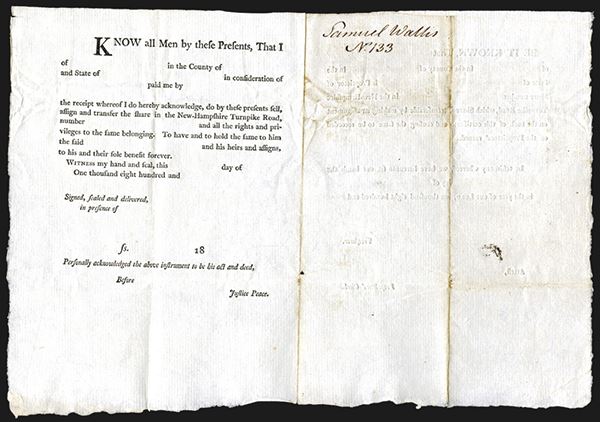 KNOW all Men by theſe Preſents, That I
of in the County of
and State of in conſideration of
paid me by
the receipt whereof I do hereby acknowledge, do by theſe preſents ſell,
aſſign and transfer the ſhare in the New-Hampſhire Turnpike Road,
number and all the rights and pri-
vileges to the ſame belonging. To have and to hold the ſame to him
the ſaid and his heirs and aſſigns,
to his and their ſole benefit forever.
WITNESS my hand and ſeal, this day of
One thouſand eight hundred and
Signed, ſealed and delivered,
in preſence of
ſs. 18
Perſonally acknowledged the above inſtrument to be his act and deed,
Before
Juſtice Peace.
Samuel Wallis
No. 133